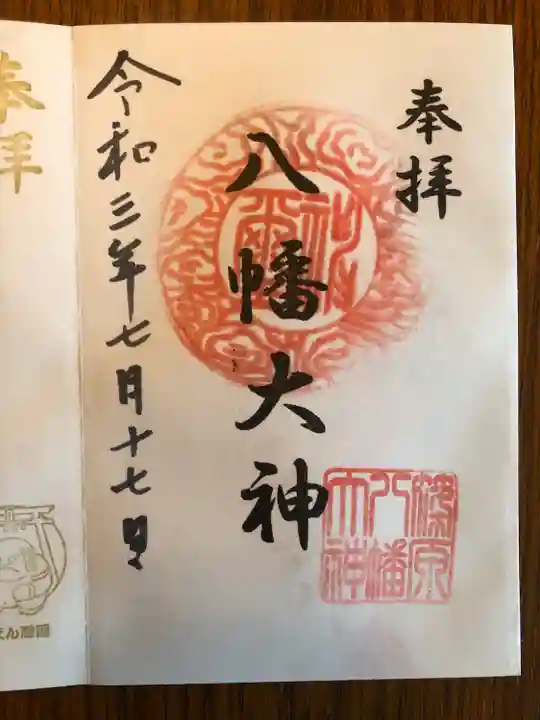 奉拝
八幡大神
令和三年七月十七日
篠原
八幡
大神
奉拝